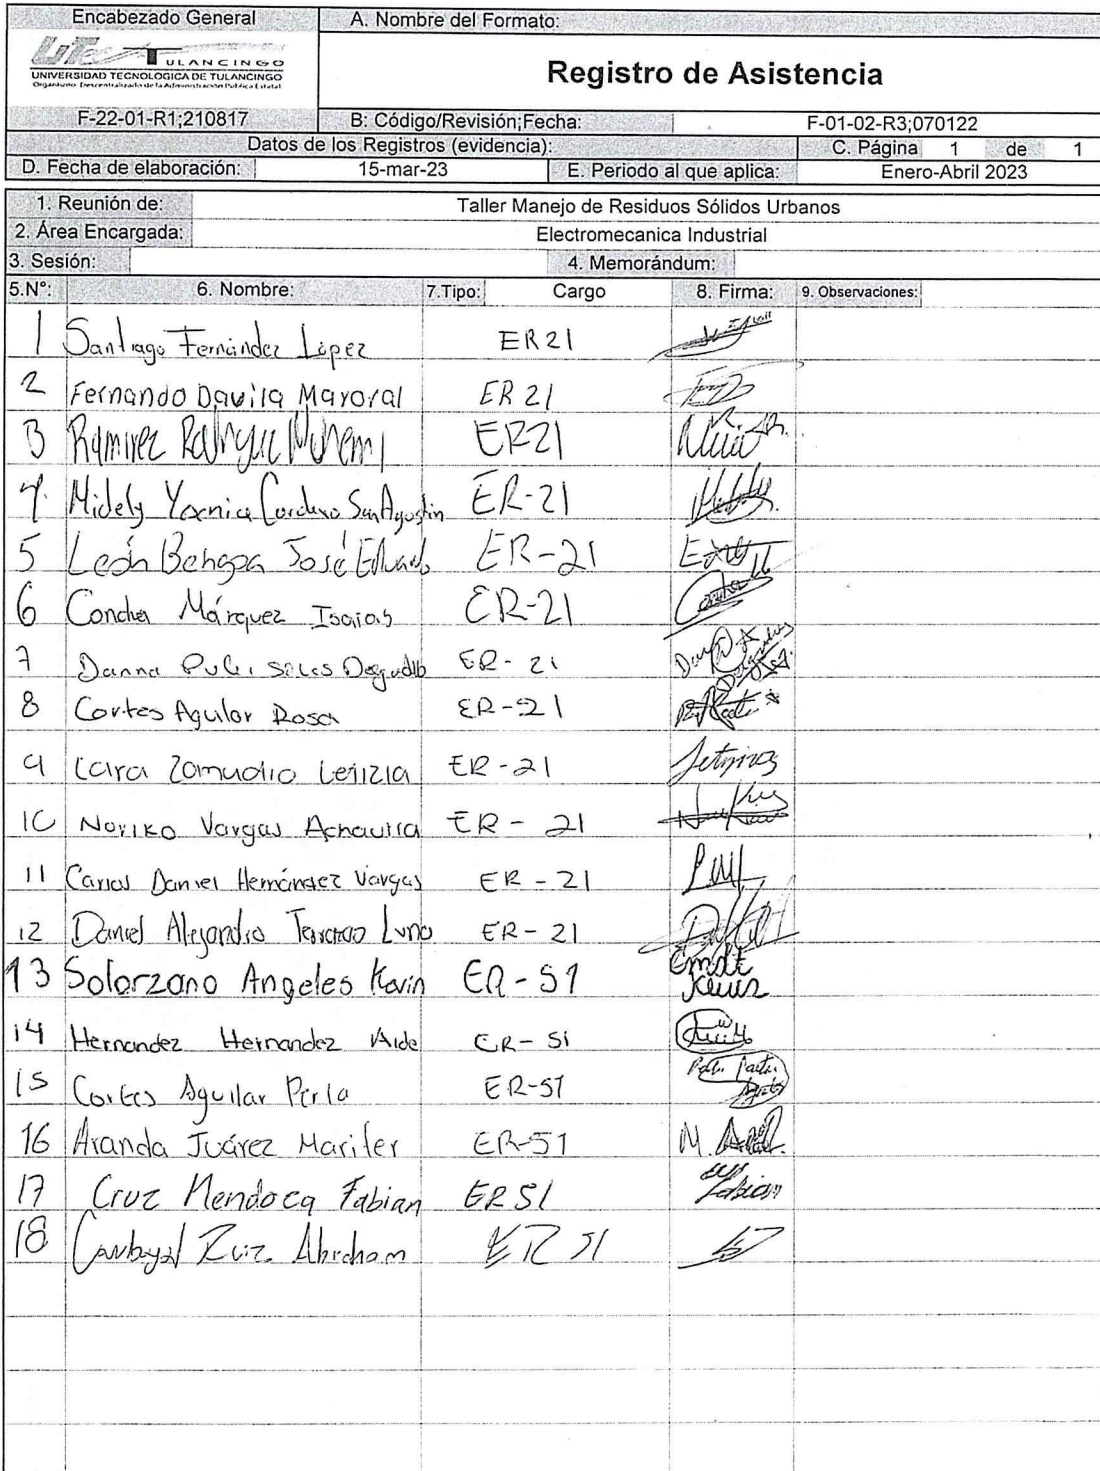 Encabezado General A. Nombre del Formato:
UTec TULANCINGO
UNIVERSIDAD TECNOLÓGICA DE TULANCINGO
Organismo Descentralizado de la Administración Pública Estatal
Registro de Asistencia
F-22-01-R1;210817 B: Código/Revisión;Fecha: F-01-02-R3;070122
Datos de los Registros (evidencia): C. Página 1 de 1
D. Fecha de elaboración: 15-mar-23 E. Periodo al que aplica: Enero-Abril 2023
1. Reunión de: Taller Manejo de Residuos Sólidos Urbanos
2. Área Encargada: Electromecanica Industrial
3. Sesión: 4. Memorándum:
5.N°: 6. Nombre: 7.Tipo: Cargo 8. Firma: 9. Observaciones:
1 Santiago Fernández López ER21
2 Fernando Davila Mayoral ER 21
3 Ramirez ER21
4 Midely San Agustin ER-21
5 León Bengoa José Eduardo ER-21
6 Concha Márquez Isaias ER-21
7 Danna ER-21
8 Cortes Aguilar Rosa ER-21
9 Lara Zamudio Letizia ER-21
10 Noriko Vargas ER-21
11 Carlos Daniel Hernández Vargas ER-21
12 Daniel Alejandro Luna ER-21
13 Solorzano Angeles Kevin ER-51
14 Hernandez Hernandez Aide ER-51
15 Cortes Aguilar Perla ER-51
16 Aranda Juárez Marifer ER-51 M.
17 Cruz Mendoca Fabian ER51 Fabian
18 Carbajal Ruiz Abraham ER 51